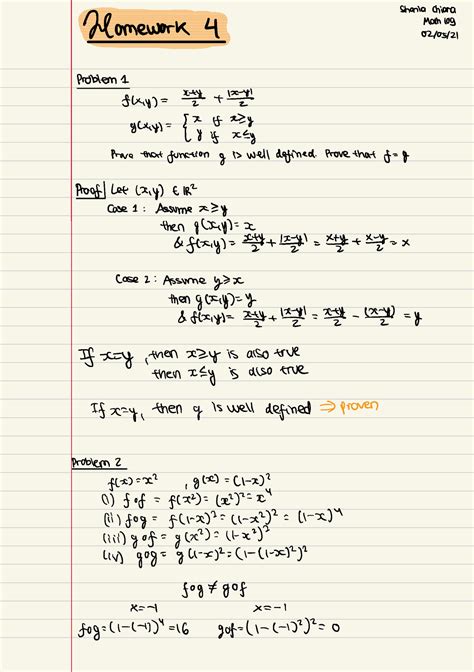 Homework 4
Shania Chiara
Math 109
02/03/21
Problem 1
f(x,y) = x+y/2 + |x-y|/2
g(x,y) = { x if x≥y
y if x≤y
Prove that function g is well defined. Prove that f = g
Proof Let (x,y) ∈ ℝ²
Case 1 : Assume x≥y
then g(x,y) = x
& f(x,y) = x+y/2 + |x-y|/2 = x+y/2 + x-y/2 = x
Case 2 : Assume y≥x
then g(x,y) = y
& f(x,y) = x+y/2 + |x-y|/2 = x+y/2 - (x-y)/2 = y
If x=y, then x≥y is also true
then x≤y is also true
If x=y, then g is well defined ⇒ proven
Problem 2
f(x) = x² , g(x) = (1-x)²
(i) fof = f(x²) = (x²)² = x⁴
(ii) fog = f(1-x)² = (1-x²)² = (1-x)⁴
(iii) gof = g(x²) = (1-x²)²
(iv) gog = g(1-x)² = (1-(1-x)²)²
fog ≠ gof
x=-1 x=-1
fog = (1-(-1))⁴ = 16 gof = (1-(-1)²)² = 0